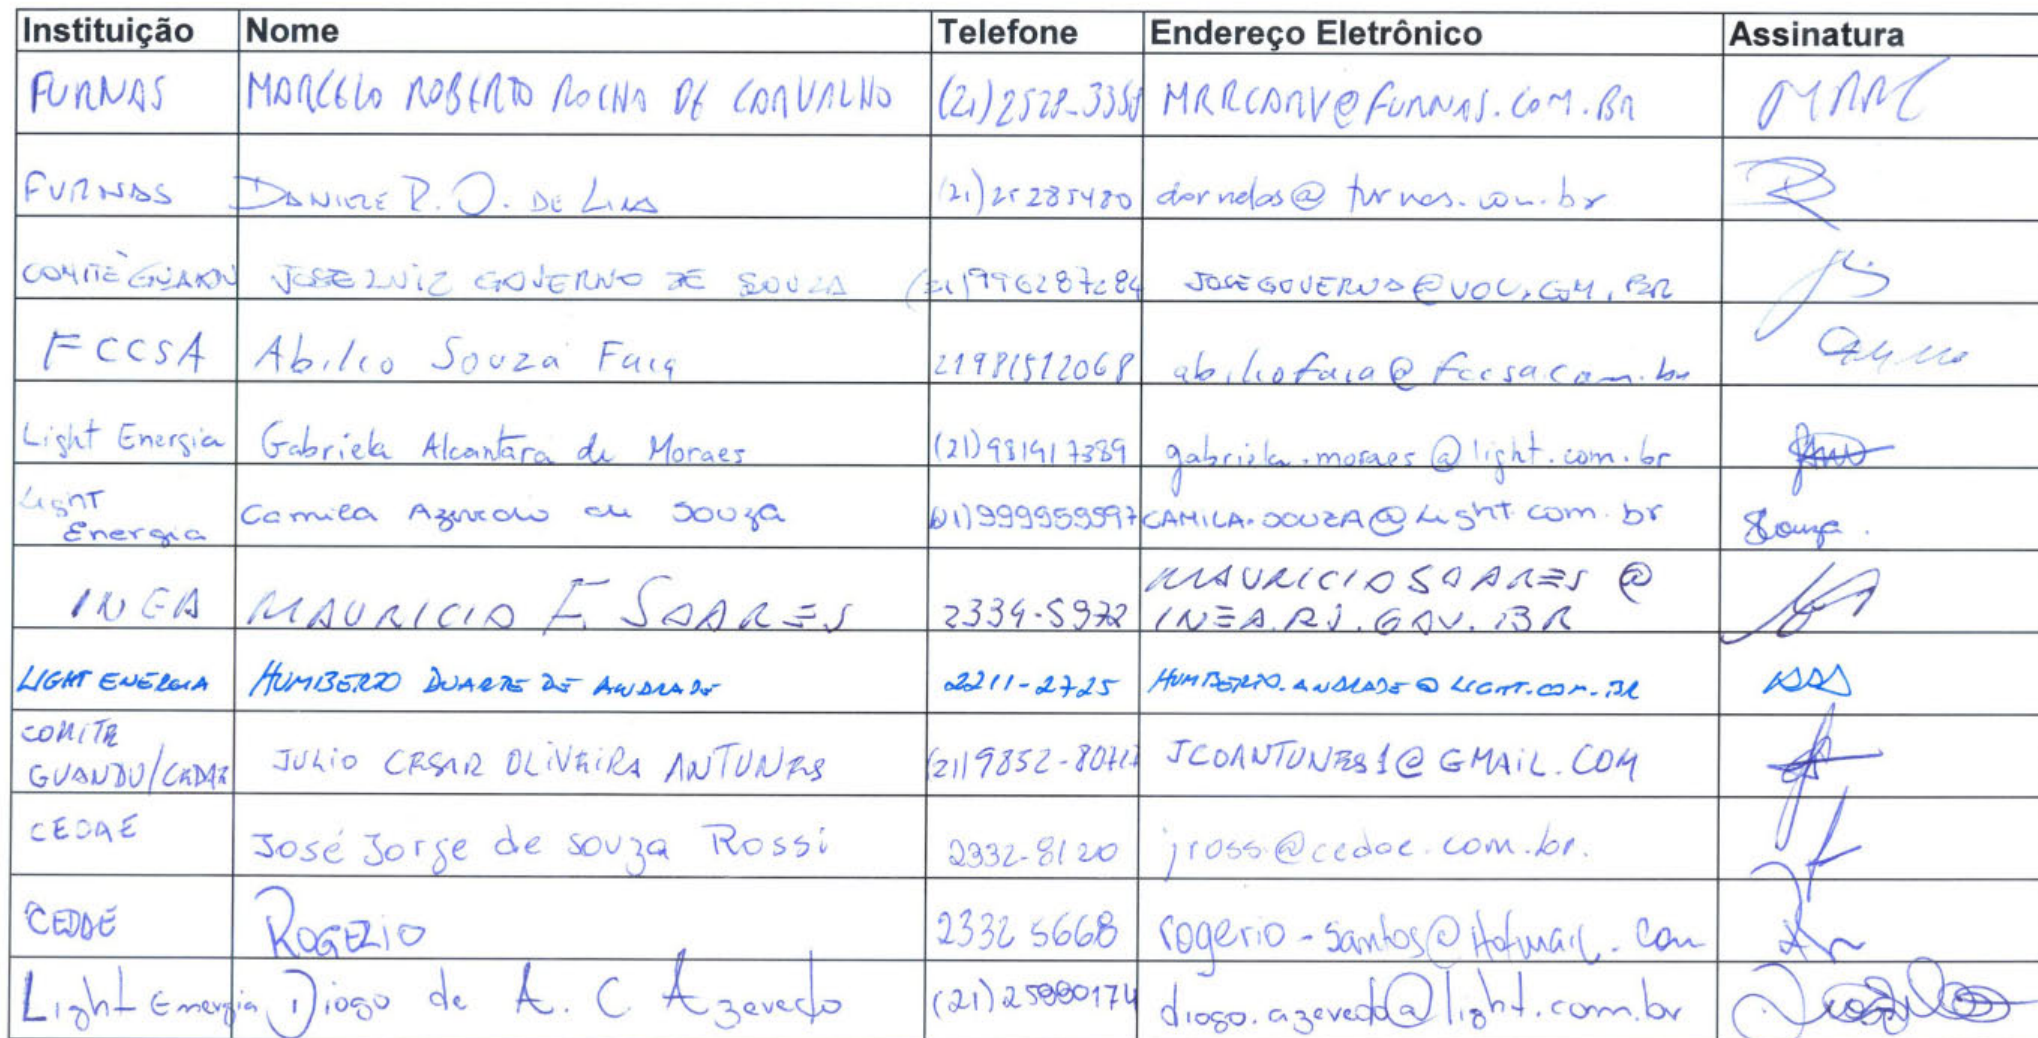 Instituição Nome Telefone Endereço Eletrônico Assinatura
FURNAS MARCELO ROBERTO ROCHA DE CARVALHO (21)2528-3358 MRRCARV@FURNAS.COM.BR MRRC
FURNAS DANIELE R. O. DE LIMA (21)25285480 dornelas@furnas.com.br
COMITÊ GUANDU JOSE LUIZ GOVERNO DE SOUZA JOSEGOVERNO@UOL.COM.BR
FCCSA Abilio Souza Faia 21981512068 abiliofaia@fccsa.com.br
Light Energia Gabriela Alcantara de Moraes (21)981917389 gabriela.moraes@light.com.br
Light Energia Camila Azevedo de Souza (21)999959597 CAMILA.SOUZA@Light.com.br Souza.
INEA MAURICIO F. SOARES 2334-5972 MAURICIOSOARES@
INEA.RJ.GOV.BR
LIGHT ENERGIA HUMBERTO DUARTE DE ANDRADE 2211-2725 HUMBERTO.ANDRADE@LIGHT.COM.BR
COMITE
GUANDU/CEDAE JULIO CESAR OLIVEIRA ANTUNES JCOANTUNES1@GMAIL.COM
CEDAE José Jorge de souza Rossi 2332-8120 jrossi@cedae.com.br.
CEDAE ROGERIO 2332 5668 rogerio-santos@Hotmail.com
Light Energia Diogo de A. C. Azevedo (21)25880174 diogo.azevedo@light.com.br